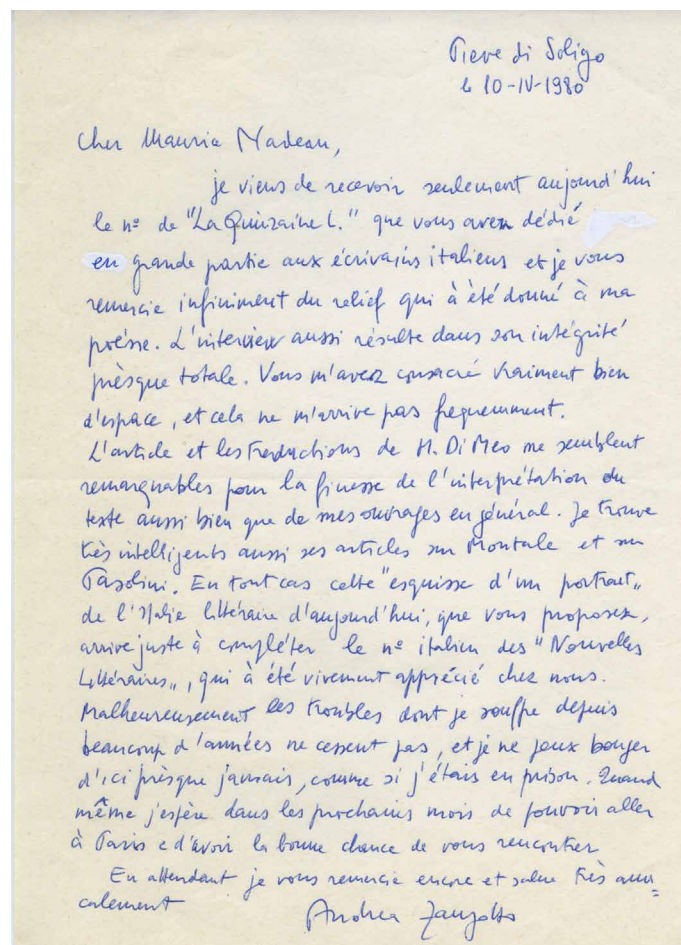 Pieve di Soligo
le 10-IV-1980
Cher Maurice Nadeau,
je viens de recevoir seulement aujourd'hui
le nº de "La Quinzaine L." que vous avez dédié
en grande partie aux écrivains italiens et je vous
remercie infiniment du relief qui à été donné à ma
poésie. L'interview aussi résulte dans son intégrité
prèsque totale. Vous m'avez consacré vraiment bien
d'espace, et cela ne m'arrive pas frequemment.
L'article et les traductions de M. Di Meo me semblent
remarquables pour la finesse de l'interprétation du
texte aussi bien que de mes ouvrages en général. Je trouve
très intelligents aussi ses articles sur Montale et sur
Pasolini. En tout cas cette "esquisse d'un portrait„
de l'Italie littéraire d'aujourd'hui, que vous proposez,
arrive juste à compléter le nº italien des "Nouvelles
Littéraires„, qui à été vivement apprécié chez nous.
Malheureusement les troubles dont je souffre depuis
beaucoup d'années ne cessent pas, et je ne peux bouger
d'ici prèsque jamais, comme si j'étais en prison. Quand
même j'espère dans les prochains mois de pouvoir aller
à Paris e d'avoir la bonne chance de vous rencontrer
En attendant je vous remercie encore et salue très ami=
calement
Andrea Zanzotto